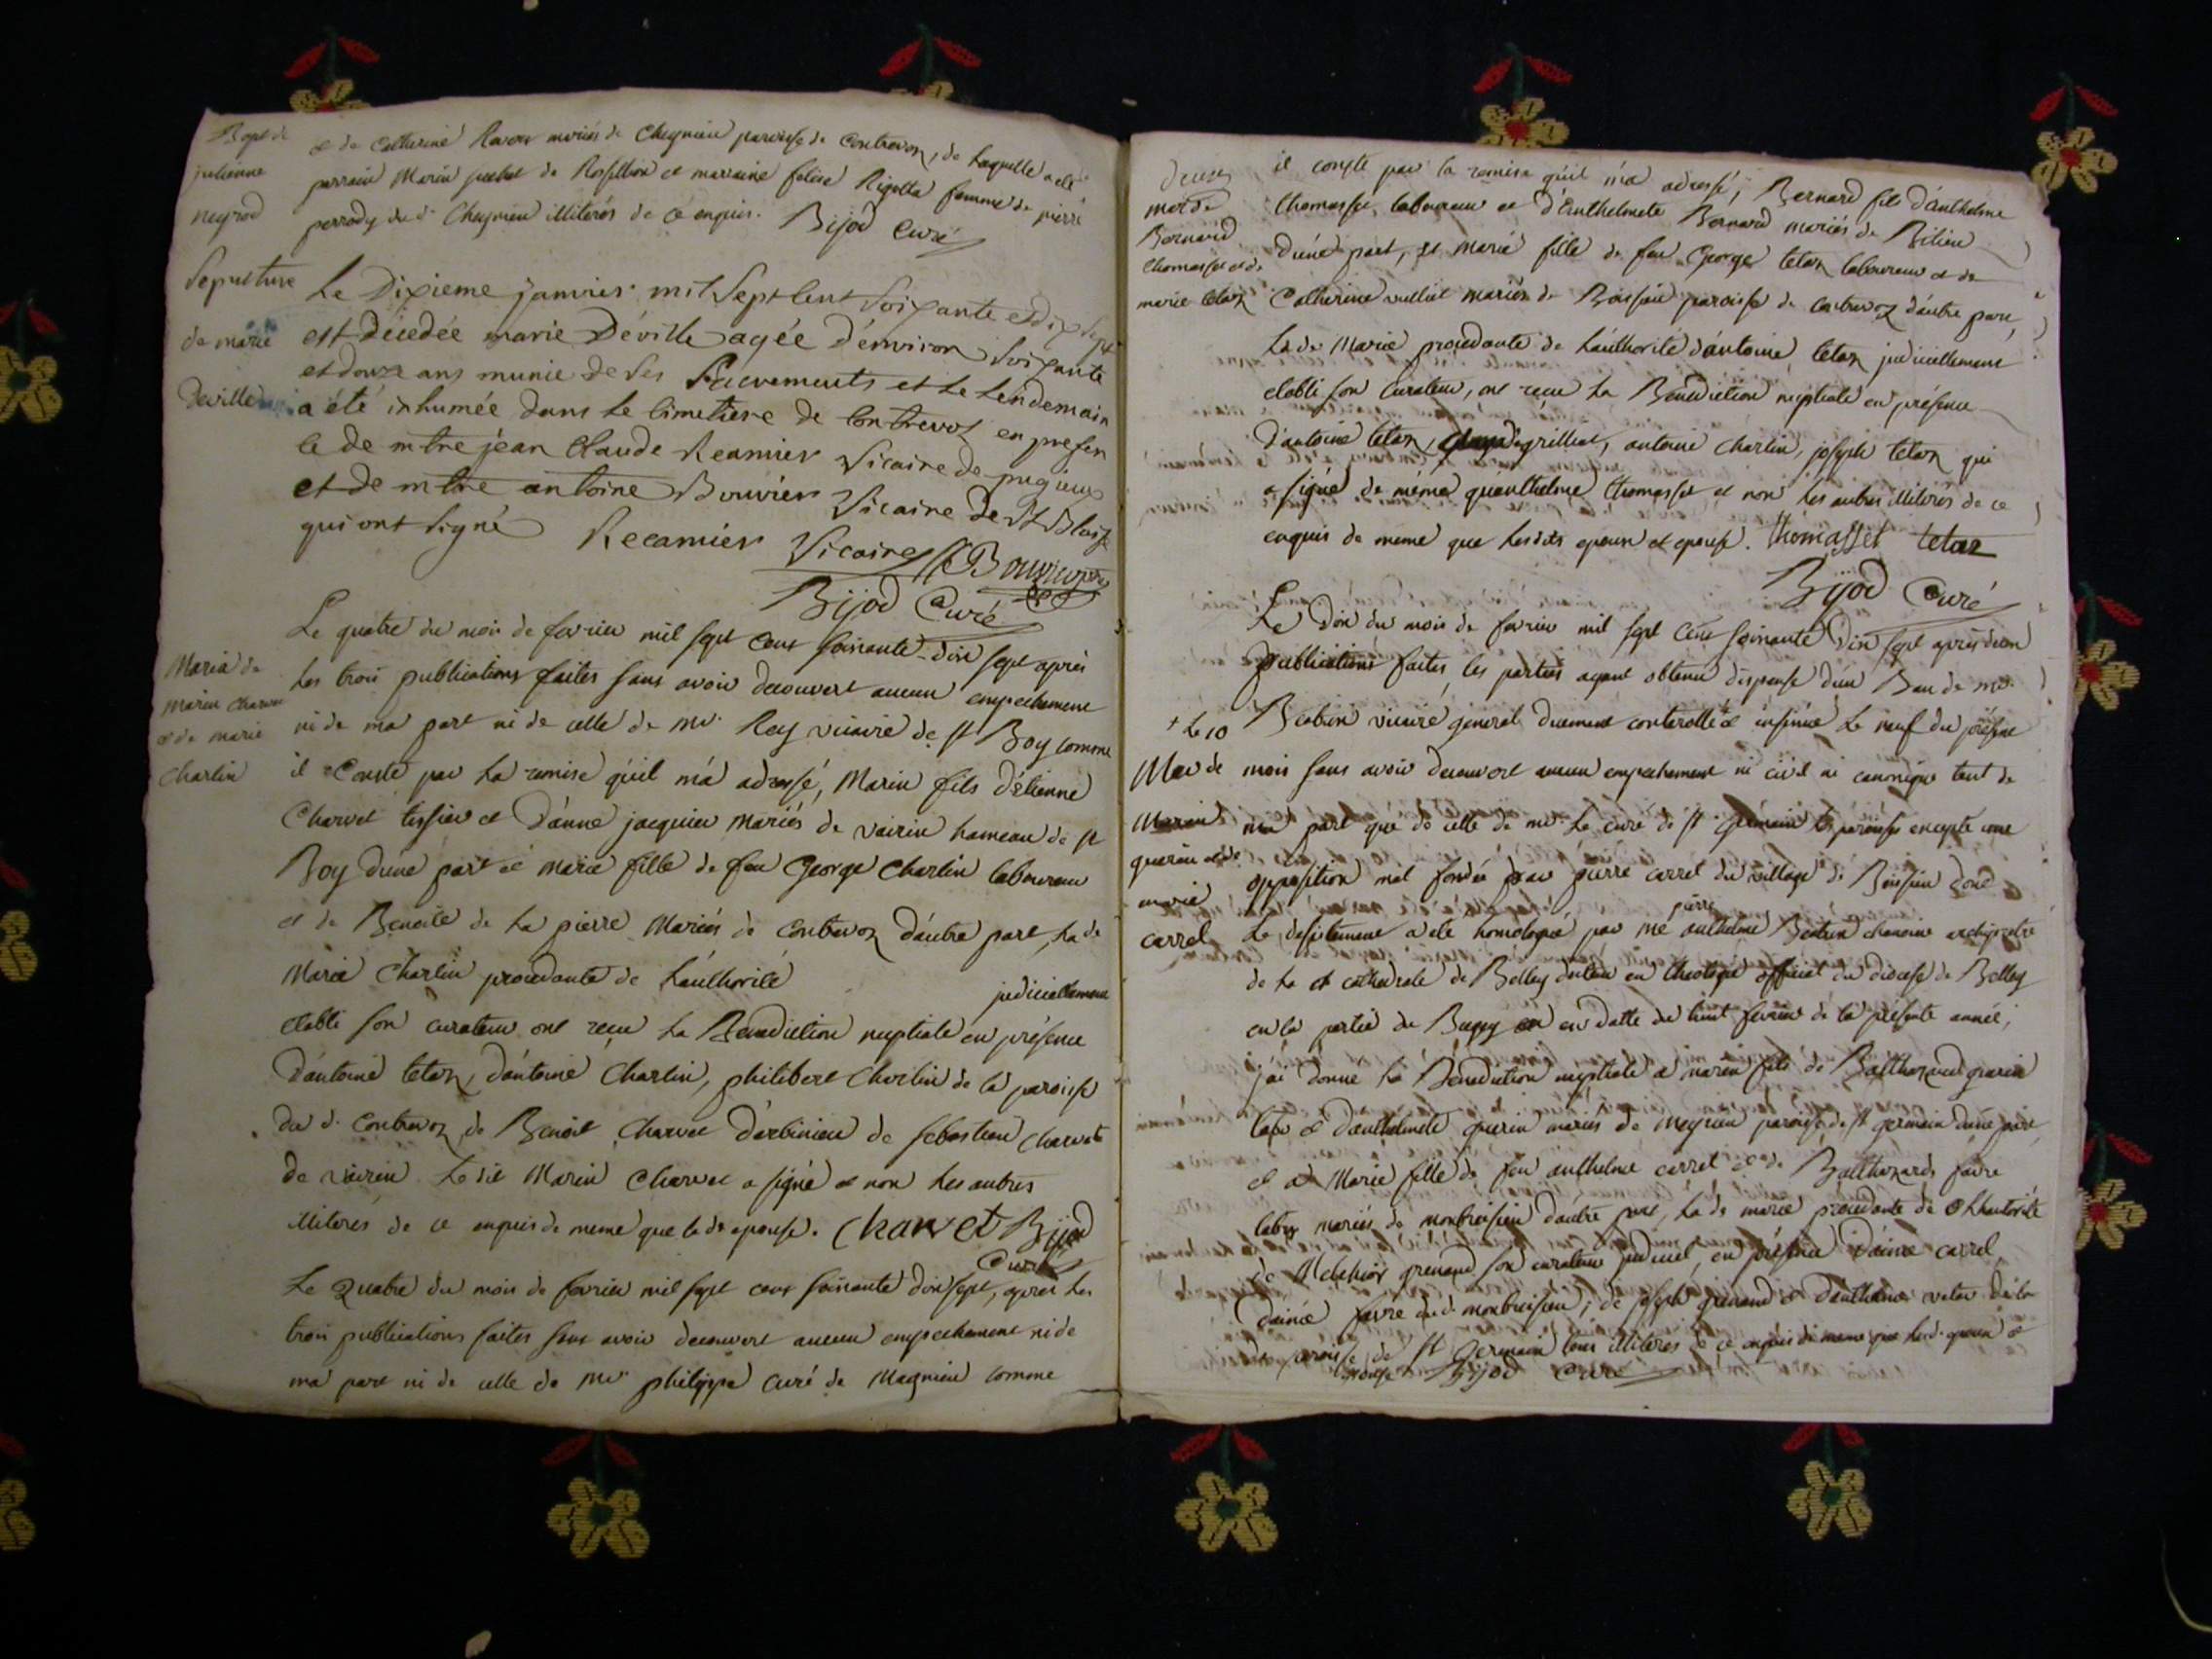 Bapt de
julienne
neyrod
et de Catherine Ravoux mariés de Cheynieu paroisse de Contrevoz, de laquelle a été
parrain Marin juchet de Rossillion et marraine felise Rigotta femme de pierre
perrody du d. Cheynieu illiterés de ce enquis. Bijod Curé
Sepulture
de marie
Deville
Le Dixieme janvier mil Sept Cent Soixante et dix Sept
est décedée marie Déville agée d'environ Soixante
et douze ans munie de Ses Sacrements et le lendemain
a été inhumée dans le Cimetiere de Contrevoz en presen
ce de mtre jean Claude Recamier Vicaire de pugieux
et de mtre antoine Bouvier Vicaire de St Blaise
qui ont signé Recamier Vicaire Bouvier
Bijod Curé
Maria de
marin charvet
et de marie
Charlin
Le quatre du mois de fevrier mil sept cent soixante-dix sept après
les trois publications faites sans avoir decouvert aucun empechement
ni de ma part ni de celle de mr. Rey vicaire de st Boy comme
il conste par la remise qu'il m'a adressé, Marin fils d'etienne
Charvet tissier et d'anne jacquier mariés de vairin hameau de st
Boy d'une part et marie fille de feu George Charlin laboureur
et de Benoite de la pierre Mariés de Contrevoz d'autre part, la de
Marie Charlin procedante de l'authorité
judiciellement
etabli son curateur ont recu la Benediction nuptiale en présence
d'antoine tetaz, d'antoine Charlin, philibert Charlin de la paroisse
du d. Contrevoz, de Benoit Charvet d'arbinieu de sebastien Charvet
de vairin le dit Marin Charvet a signé et non les autres
illiterés de ce enquis de meme que la de epouse. Charvet Bijod
Curé
Le Quatre du mois de fevrier mil sept cent soixante dix sept, après les
trois publications faites sans avoir decouvert aucun empechement ni de
ma part ni de celle de mr. philippe curé de Magnieu comme
mar de
Bernard
thomasset et de
marie tetaz
il conste par la remise qu'il m'a adressé; Bernard fils d'anthelme
thomasset laboureur et d'anthelmete Bernard mariés de Bilieu
d'une part, et marie fille de feu George tetaz laboureur et de
Catherine vulliet mariés de Boissieu paroisse de contrevoz d'autre part,
La de Marie procedante de l'authorité d'antoine tetaz judiciellement
etabli son Curateur, ont recu la Benediction nuptiale en présence
d'antoine tetaz, grilliet, antoine charlin, joseph tetaz qui
a signé de même qu'anthelme thomasset et non les autres illiterés de ce
enquis de meme que lesdits epoux et epouse. thomasset tetaz
Bijod Curé
+ Le 10
Mar de
Marin
guerin et de
marie
carrel
Le dix du mois de fevrier mil sept cent soixante dix sept après deux
publications faites, les parties ayant obtenu dispense d'un Ban de mr.
Beatrix vicaire general duement controllé et insinué Le neuf du présent
mois sans avoir decouvert aucun empechement ni civil ni canonique tant de
ma part que de celle de mr le curé de st germain excepté une
opposition mal fondée par pierre carrel du village de Boissieu dont
pierre
Le desistement a été homologué par me anthelme Beatrix chanoine archiprêtre
de la st cathedrale de Belley docteur en theologie official du diocese de Belley
en la partie du Bugey en datte du huit fevrier de la présente année;
j'ai donné la Benediction nuptiale a marin fils de Balthazard guerin
labr et d'anthelmete guerin mariés de meyrieu paroisse de st germain d'une part
et a Marie fille de feu anthelme carrel et de Balthazarde favre
labrs mariés de montbreisieu d'autre part, la de marie procedante de l'hautorité
de Melchior grenaud son curateur judiciel, en présence d'aimé carrel
d'aimé favre dud. montbreisieu; de joseph grenaud et d'anthelme de la
de paroisse de st germain tous illiterés de ce enquis de meme que lesd. epoux et
epouse Bijod Curé